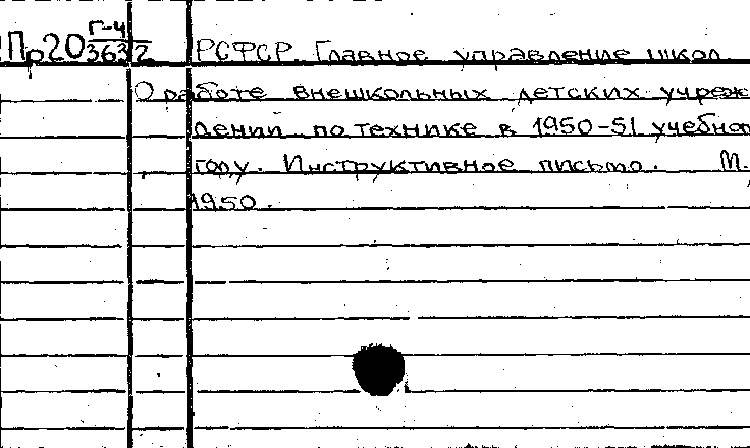 Пр20 Г-4
363/2 РСФСР. Главное управление школ
О работе внешкольных детских учреж
дений по технике в 1950-51 учебно
году. Инструктивное письмо. М.
1950.